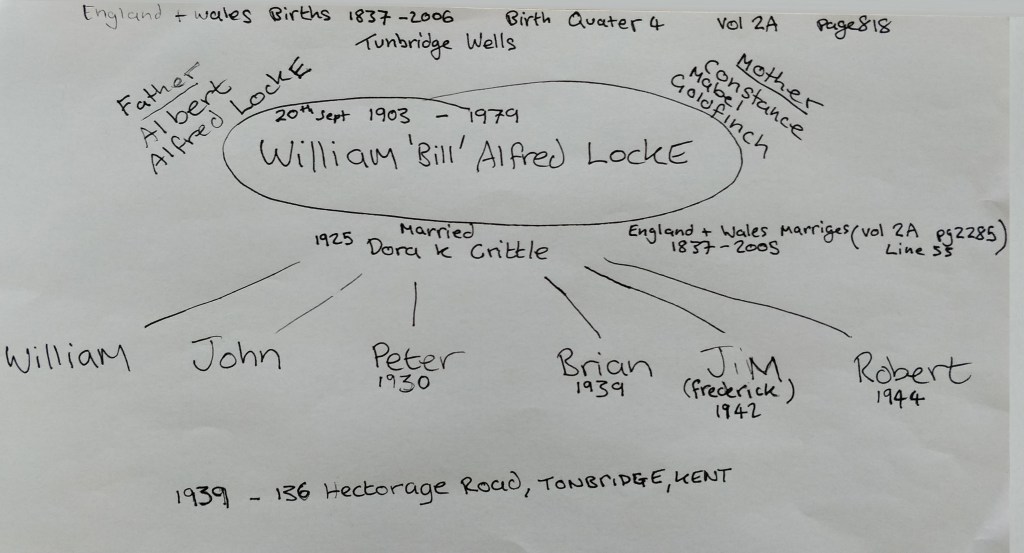 England + Wales Births 1837-2006 Birth Quater 4 Vol 2A Page818
Tunbridge Wells
Father
Albert
Alfred LOCKE
Mother
Constance
Mabel
Goldfinch
20th Sept 1903 - 1979
William 'Bill' Alfred LOCKE
Married
1925 Dora K Crittle
England + Wales Marriges (vol 2A pg2285)
1837-2005 Line 55
William John Peter Brian Jim Robert
1930 1939 (frederick) 1944
1942
1939 - 136 Hectorage Road, TONBRIDGE, KENT